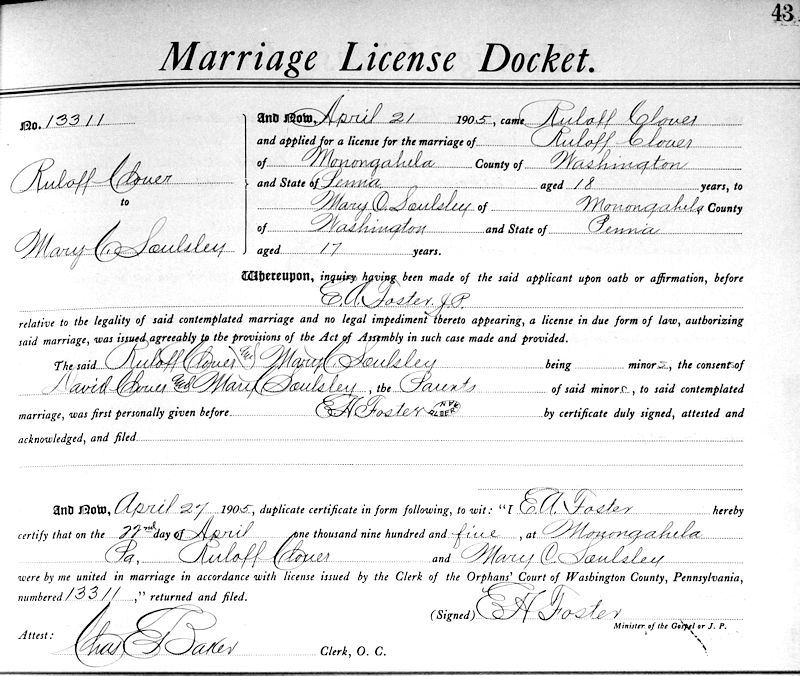 43
Marriage License Docket.
No. 13311
Ruloff Clover
to
Mary C. Soulsley
And Now, April 21 1905, came Ruloff Clover
and applied for a license for the marriage of Ruloff Clover
of Monongahela County of Washington
and State of Penna aged 18 years, to
Mary C. Soulsley of Monongahela County
of Washington and State of Penna
aged 17 years.
Whereupon, inquiry having been made of the said applicant upon oath or affirmation, before
E. A. Foster, J.P.
relative to the legality of said contemplated marriage and no legal impediment thereto appearing, a license in due form of law, authorizing
said marriage, was issued agreeably to the provisions of the Act of Assembly in such case made and provided.
The said Ruloff Clover and Mary C. Soulsley being minors, the consent of
David Clover and Mary Soulsley, the Parents of said minors, to said contemplated
marriage, was first personally given before E H Foster by certificate duly signed, attested and
acknowledged, and filed
And Now, April 27 1905, duplicate certificate in form following, to wit: "I E. A. Foster hereby
certify that on the 22nd day of April one thousand nine hundred and five, at Monongahela
Pa, Ruloff Clover and Mary C. Soulsley
were by me united in marriage in accordance with license issued by the Clerk of the Orphans' Court of Washington County, Pennsylvania,
numbered 13311," returned and filed.
(Signed) E H Foster
Minister of the Gospel or J. P.
Attest: Chas E Baker Clerk, O. C.